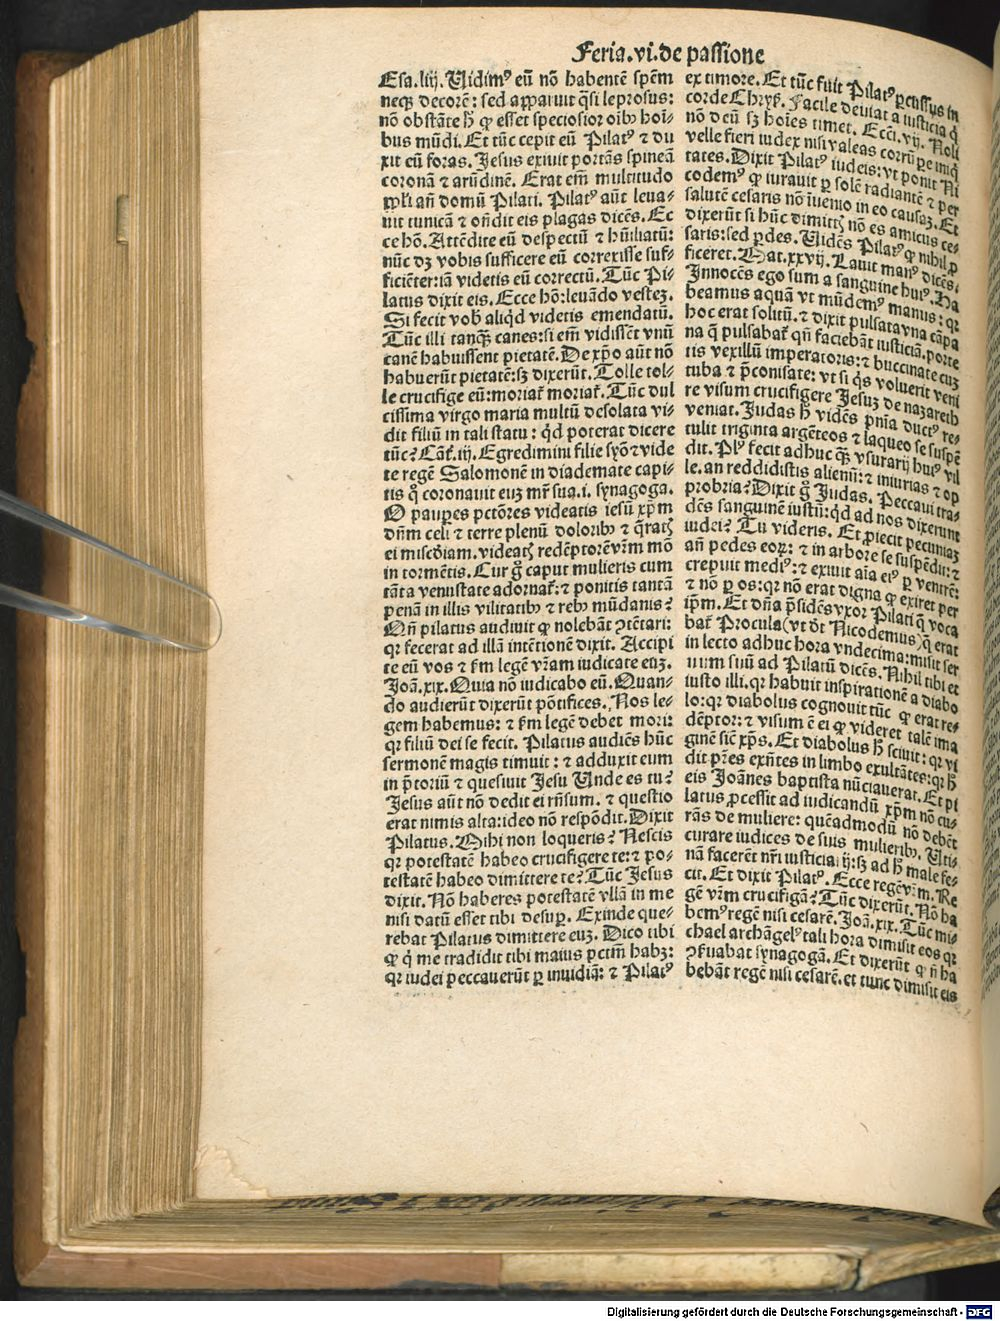 Feria.vi.de passione
Esa.liij. Uidimꝰ eū nō habentē spēm
neqꝫ decorē: sed apparuit q̄si leprosus:
nō obstāte h̄ ꝙ esset speciosior oībꝰ hoī-
bus mūdi. Et tūc cepit eū Pilatꝰ ⁊ du
xit eū foras. Jesus exiuit portās spineā
coronā ⁊ arūdinē. Erat em̄ multitudo
ppl̓i añ domū Pilati. Pilatꝰ aūt leua-
uit tunicā ⁊ oñdit eis plagas dicēs. Ec
ce hō. Attēdite eū despectū ⁊ hūiliatū:
nūc dꝫ vobis sufficere eū correxisse suf-
ficiēter: iā videtis eū correctū. Tūc Pi-
latus dixit eis. Ecce hō: leuādo vesteꝫ.
Si fecit vob̓ aliqd̓ videtis emendatū.
Tūc illi tanqꝫ canes: si em̄ vidissēt vnū
canē habuissent pietatē. De xp̄o aūt nō
habuerūt pietatē: sꝫ dixerūt. Tolle tol-
le crucifige eū: moriať moriať. Tūc dul
cissima virgo maria multū desolata vi-
dit filiū in tali statu: qd̓ poterat dicere
tūc? Cāť. iij. Egredimini filie syō ⁊ vide
te regē Salomonē in diademate capi-
tis q̊ coronauit euꝫ mr̄ sua. i. synagoga.
O paup̱es pctōres videatis iesū xp̄m
dn̄m celi ⁊ terre plenū doloribꝰ ⁊ q̄ratꝭ
ei miscōiam. videatꝭ redēptorē vr̄m mō
in tormētis. Cur gͦ caput mulieris cum
tāta venustate adornať: ⁊ ponitis tantā
penā in illis vilitatibꝰ ⁊ rebꝰ mūdanis?
Qn̄ pilatus audiuit ꝙ nolebāt ꝯtētari:
qꝛ fecerat ad illā intētionē dixit. Accipi
te eū vos ⁊ ẜm legē vr̄am iudicate euꝫ.
Joā. xix. Quia nō iudicabo eū. Quan-
do audierūt dixerūt pōtifices. Nos le-
gem habemus: ⁊ ẜm legē debet mori:
qꝛ filiū dei se fecit. Pilatus audiēs hūc
sermonē magis timuit: ⁊ adduxit eum
in p̄toriū ⁊ quesiuit Jesu Unde es tu?
Jesus aūt nō dedit ei rn̄sum. ⁊ questio
erat nimis alta: ideo nō respōdit. Dixit
Pilatus. Mihi non loqueris? Nescis
qꝛ potestatē habeo crucifigere te: ⁊ po-
testatē habeo dimittere te? Tūc Jesus
dixit. Nō haberes potestatē vllā in me
nisi datū esset tibi desup̱. Exinde que-
rebat Pilatus dimittere euꝫ. Dico tibi
ꝙ q̇ me tradidit tibi maius pctm̄ habꝫ:
qꝛ iudei peccauerūt ꝑ inuidiā: ⁊ Pilatꝰ
ex timore. Et tūc fuit Pilatꝰ ꝑcussus in
corde Chryſ. Facile deuiat a iusticia q̇
nō deū sꝫ hoīes timet. Eccī. vij. Noli
velle fieri iudex nisi valeas corrūpe iniq̇
tates. Dixit Pilatꝰ iudeis: vt ponit Ni
codemꝰ ꝙ iurauit ꝑ solē radiantē ⁊ per
salutē cesaris nō īuenio in eo causaꝫ. Et
dixerūt si hūc dimittꝭ nō es amicus ce-
saris: sed ꝑdes. Uidēs Pilatꝰ ꝙ nihil ꝓ
ficeret. Mat. xxvij. Lauit manꝰ dicēs.
Innocēs ego sum a sanguine huiꝰ. Ha
beamus aquā vt mūdemꝰ manus: qꝛ
hoc erat solitū. ⁊ dixit pulsata vna cāpa
na q̄ pulsabať qn̄ faciebāt iusticiā. porte
tis vexillū imperatoris: ⁊ buccinate cuꝫ
tuba ⁊ p̄conisate: vt si q̇s voluerit veni
re visum crucifigere Jesuꝫ de nazareth
veniat. Judas h̄ vidēs pn̄ia ductꝰ re-
tulit triginta argēteos ⁊ laqueo se suspē
dit. Plꝰ fecit adhuc q̄ꝫ vsurarij huiꝰ vil
le. an reddidistis alienū: ⁊ iniurias ⁊ op
probria? Dixit gͦ Judas. Peccaui tra-
dēs sanguinē iustū: qd̓ ad nos dixerunt
iudei? Tu videris. Et ꝓiecit pecuniaꝫ
añ pedes eoꝝ: ⁊ in arbore se suspēdit: ⁊
crepuit mediꝰ: ⁊ exiuit aīa eiꝰ ꝑ ventrē:
⁊ nō ꝑ os: qꝛ nō erat digna ꝙ exiret per
ip̄m. Et dn̄a p̄sidēs vxor Pilati q̄ voca
bať Procula (vt dt̄ Nicodemus) q̄ erat
in lecto adhuc hora vndecima: misit ser
uum suū ad Pilatū dicēs. Nihil tibi et
iusto illi. qꝛ habuit inspirationē a diabo
lo: qꝛ diabolus cognouit tūc ꝙ erat re-
dēptor: ⁊ visum ē ei ꝙ videret talē ima
ginē sic̄ xp̄s. Et diabolus h̄ sciuit: qꝛ vi
dit pr̄es exn̄tes in limbo exultātes: qꝛ h̄
eis Joānes baptista nūciauerat. Et pi
latus ꝓcessit ad iudicandū xp̄m nō cu-
rās de muliere: quēadmodū nō debēt
curare iudices de suis mulieribꝰ. Uti-
nā facerēt nr̄i iusticiarij: sꝫ ad h̄ male fe-
cit. Et dixit Pilatꝰ. Ecce regē vr̄m. Re
gē vr̄m crucifigā? Tūc dixerūt. Nō ha
bemꝰ regē nisi cesarē. Joā. xix. Tūc mi-
chael archāgelꝰ tali hora dimisit eos qꝛ
ꝯẜuabat synagogā. Et dixerūt ꝙ n̄ ha
bebāt regē nisi cesarē. et tunc dimisit eis
Digitalisierung gefördert durch die Deutsche Forschungsgemeinschaft - DFG